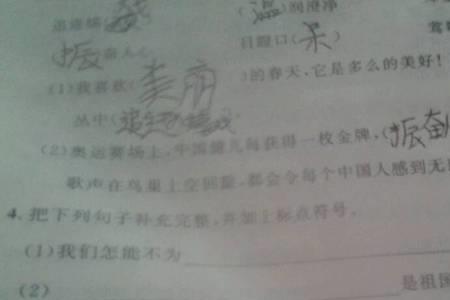 追逐嬉(戏) (温)润澄净 莺
(振)奋人心 目瞪口(呆)
(1)我喜欢(美丽)的春天,它是多么的美好!
丛中(追逐嬉戏
(2)奥运赛场上,中国健儿每获得一枚金牌,(振奋
歌声在鸟巢上空回旋,都会令每个中国人感到无
4.把下列句子补充完整,并加上标点符号。
(1)我们怎能不为
(2) 是祖国